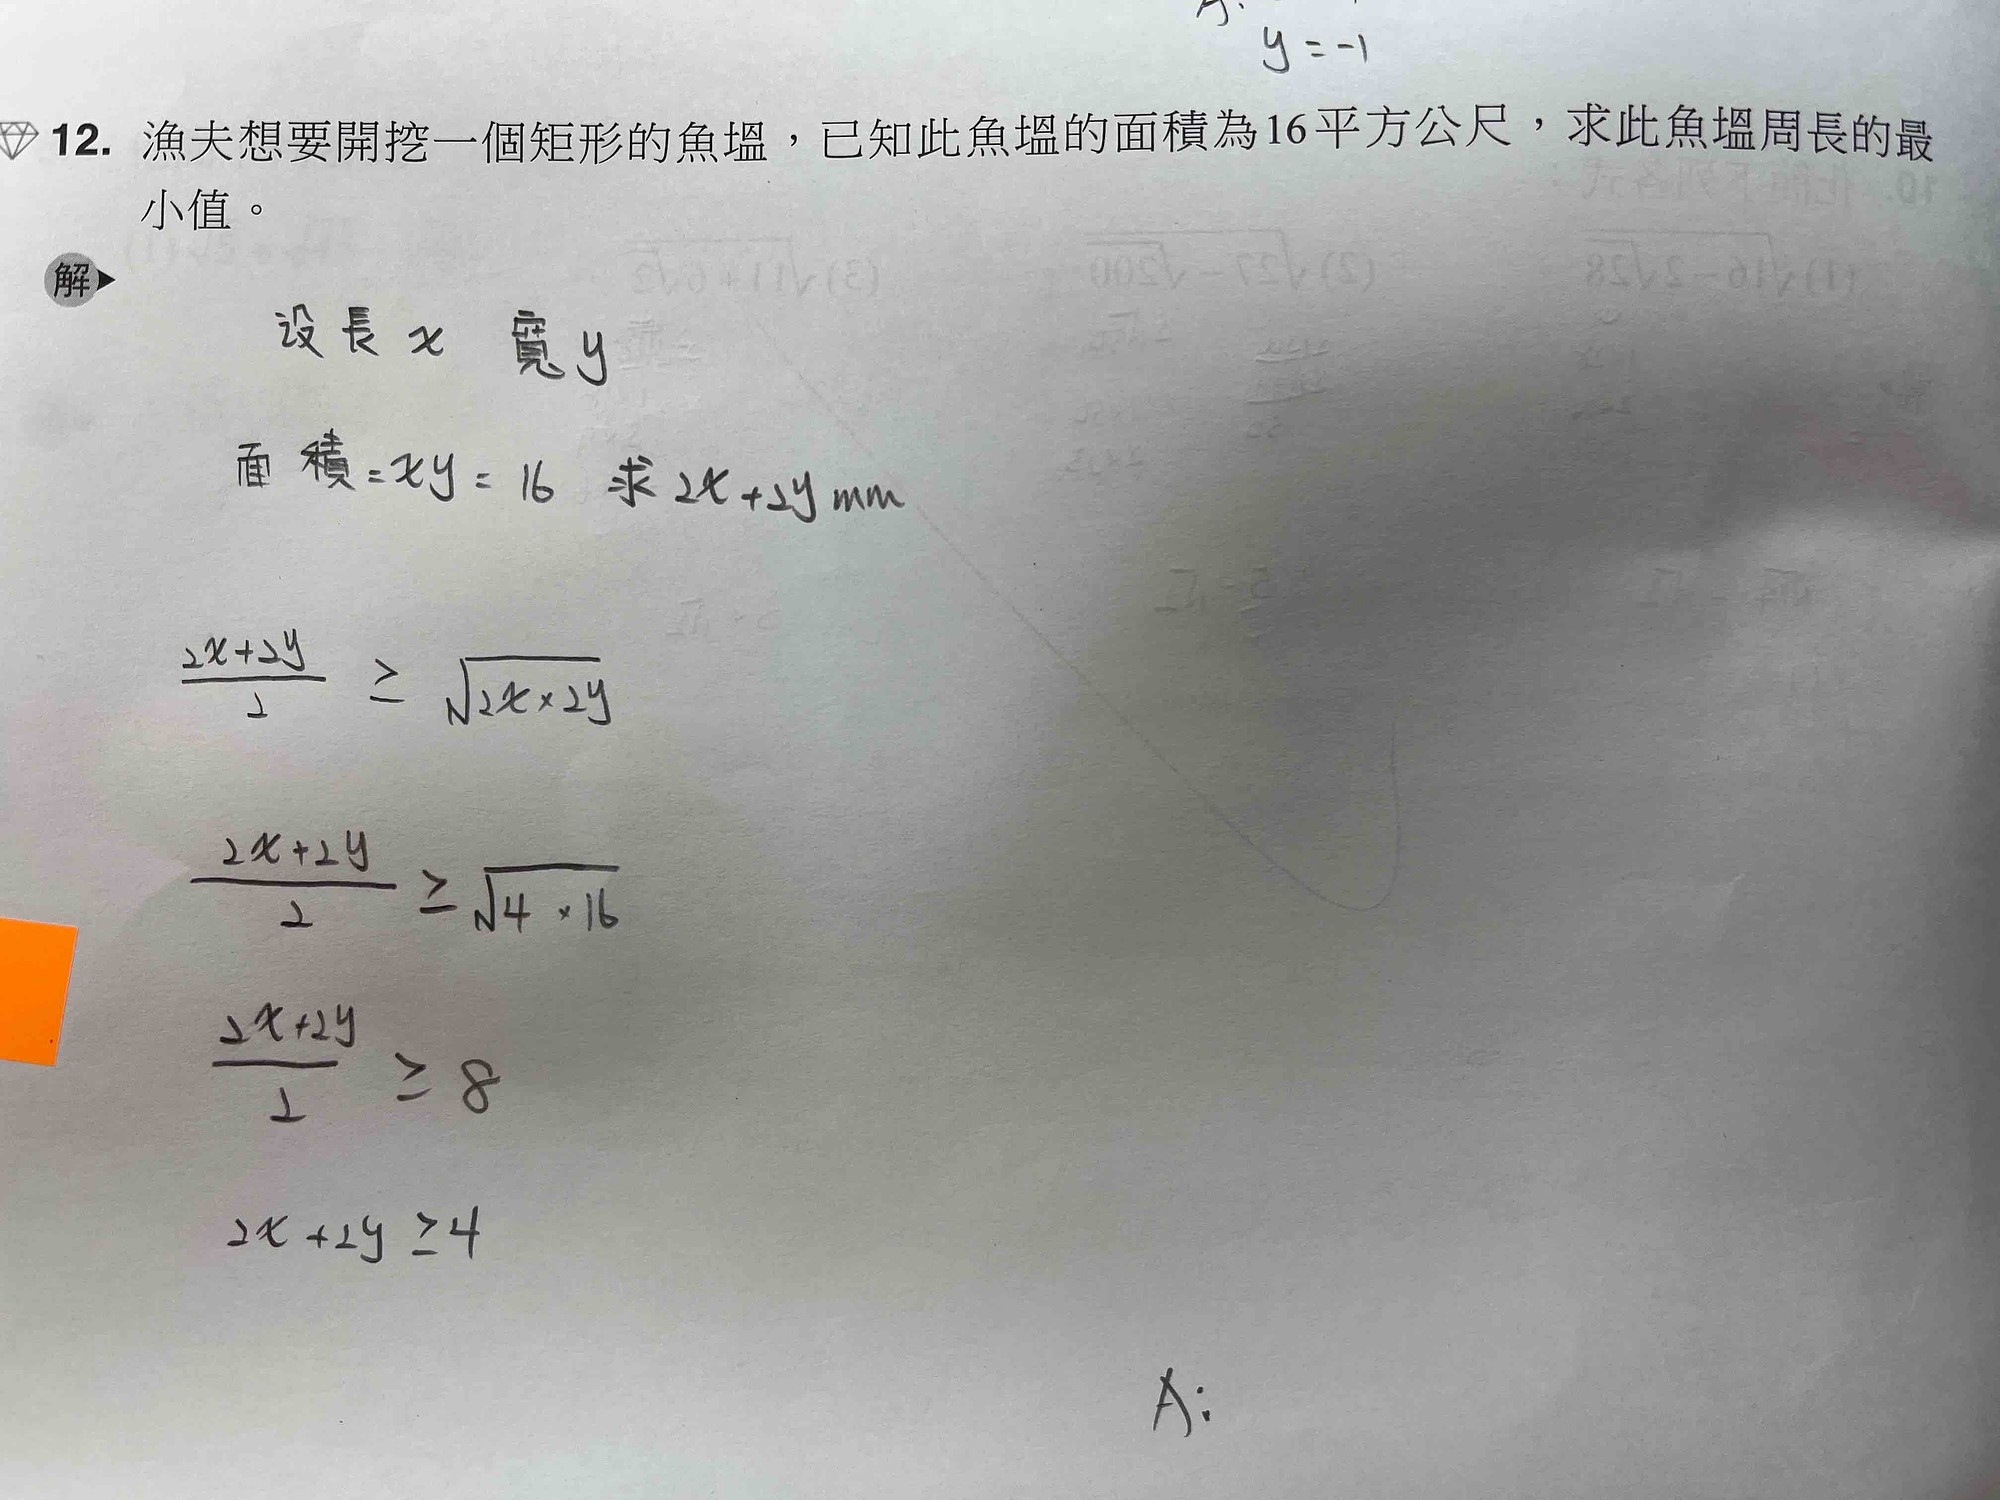 y = -1
12. 漁夫想要開挖一個矩形的魚塭，已知此魚塭的面積為16平方公尺，求此魚塭周長的最
小值。
解
設長 x 寬 y
面積 = xy = 16 求 2x+2y min
(2x+2y)/2 ≥ √(2x×2y)
(2x+2y)/2 ≥ √(4×16)
(2x+2y)/2 ≥ 8
2x+2y ≥ 4
A: